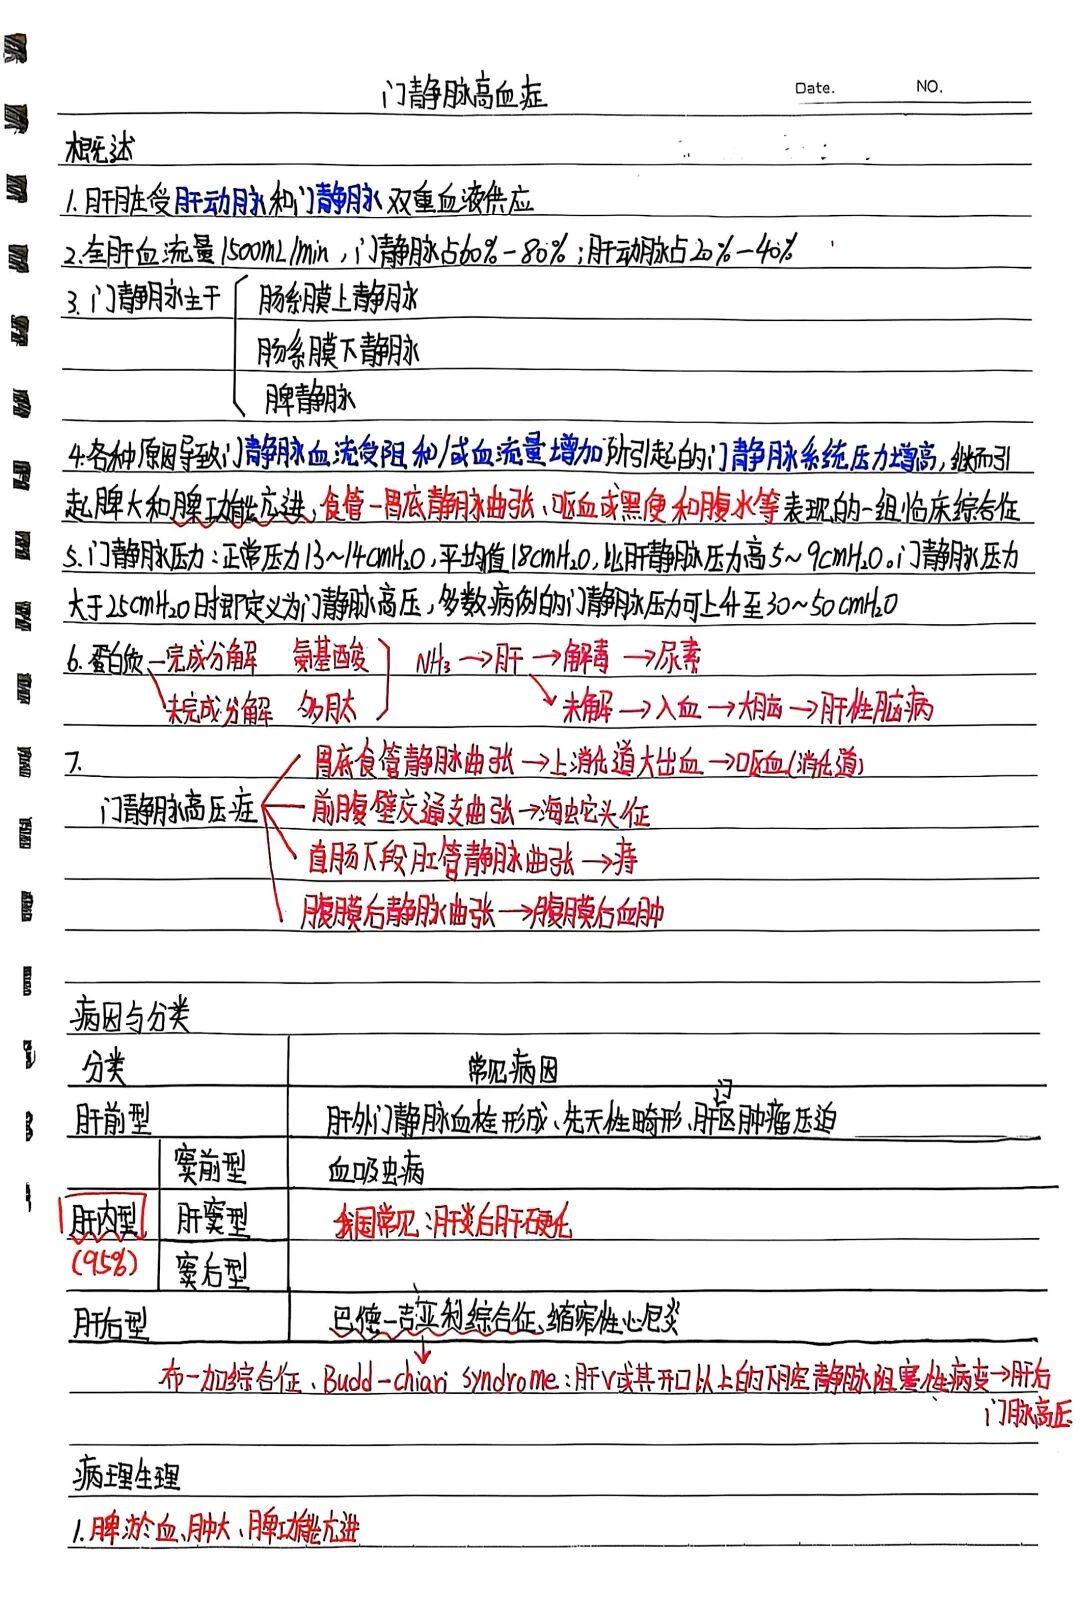 门静脉高血症
Date. NO.
概述
1.肝脏受肝动脉和门静脉双重血液供应
2.全肝血流量1500mL/min，门静脉占60%-80%；肝动脉占20%-40%
3.门静脉主干 肠系膜上静脉
肠系膜下静脉
脾静脉
4.各种原因导致门静脉血流受阻和/或血流量增加所引起的门静脉系统压力增高，继而引
起脾大和脾功能亢进，食管-胃底静脉曲张、呕血或黑便和腹水等表现的一组临床综合征
5.门静脉压力：正常压力13~14cmH₂O，平均值18cmH₂O，比肝静脉压力高5~9cmH₂O。门静脉压力
大于25cmH₂O时即定义为门静脉高压，多数病例的门静脉压力可上升至30~50cmH₂O
6.蛋白质—完成分解 氨基酸 NH₃→肝→解毒→尿素
未完成分解 多肽 未解→入血→大脑→肝性脑病
7. 胃底食管静脉曲张→上消化道大出血→呕血(消化道)
门静脉高压症 前腹壁交通支曲张→海蛇头征
直肠下段肛管静脉曲张→痔
腹膜后静脉曲张→腹膜后血肿
病因与分类
分类 常见病因
肝前型 肝外门静脉血栓形成、先天性畸形、肝门区肿瘤压迫
窦前型 血吸虫病
肝内型 肝窦型 我国常见：肝炎后肝硬化
(95%) 窦后型
肝后型 巴德-吉亚利综合征、缩窄性心包炎
布-加综合征、Budd-chiari syndrome：肝V或其开口以上的下腔静脉阻塞性病变→肝后
门脉高压
病理生理
1.脾淤血、肿大、脾功能亢进